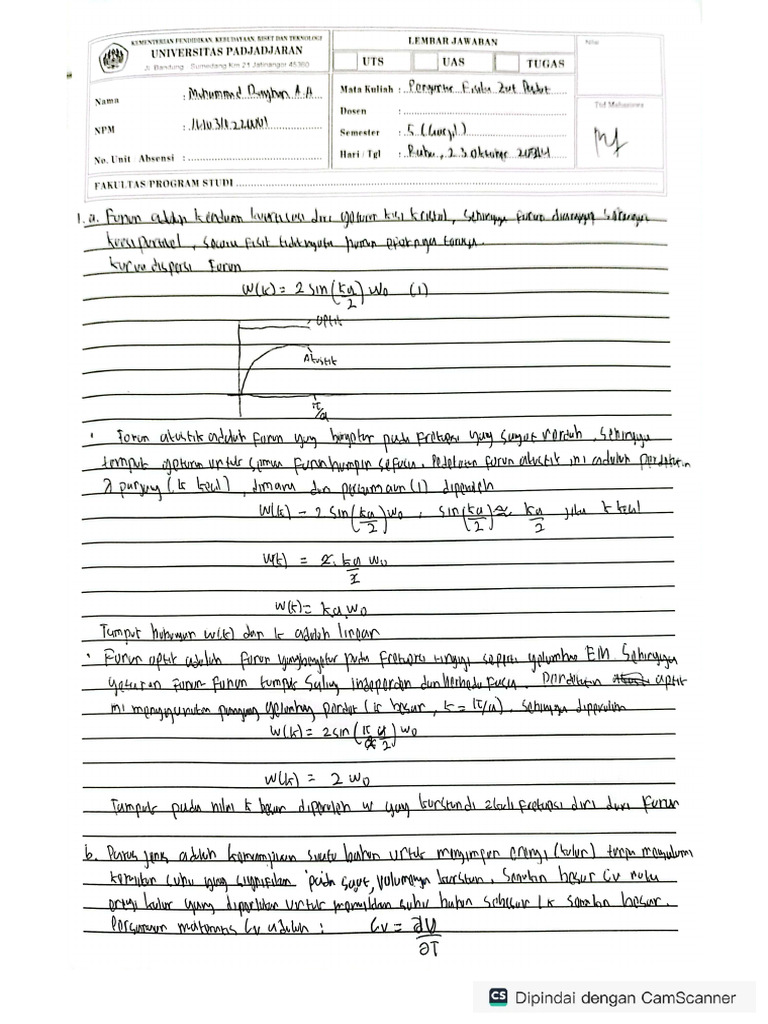 KEMENTERIAN PENDIDIKAN, KEBUDAYAAN, RISET DAN TEKNOLOGI
UNIVERSITAS PADJADJARAN
Jl. Bandung - Sumedang Km 21 Jatinangor 45360
LEMBAR JAWABAN
UTS UAS TUGAS
Nilai
Nama : Muhammad A.A
NPM :
No. Unit Absensi :
Mata Kuliah : Pengantar Fisika Zat Padat
Dosen :
Semester : 5 (Ganjil)
Hari / Tgl : Rabu, 23 Oktober
Ttd Mahasiswa
FAKULTAS PROGRAM STUDI
1. a. Fonon adalah dari getaran kisi kristal, sehingga fonon dianggap sebagai
secara fisik tidak nyata namun efeknya
kurva dispersi Fonon
W(k) = 2 sin(ka/2) W₀ (1)
optik
Akustik
π/a
• Fonon akustik adalah fonon yang bergetar pada frekuensi yang sangat rendah, sehingga
tampak getaran untuk semua fonon hampir sefasa. Pendekatan fonon akustik ini adalah pendekatan
λ panjang (k kecil), dimana dan persamaan (1) diperoleh
W(k) = 2 sin(ka/2) W₀, sin(ka/2) ≈ ka/2 jika k kecil
W(k) = 2. ka/2 W₀
W(k) = ka.W₀
Tampak hubungan W(k) dan k adalah linear
• Fonon optik adalah fonon yang bergetar pada frekuensi tinggi seperti gelombang EM. Sehingga
getaran fonon-fonon tampak saling independen dan berbeda fasa. Pendekatan optik
ini menggunakan panjang gelombang pendek (k besar, k = π/a). Sehingga diperoleh
W(k) = 2 sin(π a/a 2) W₀
W(k) = 2 W₀
Tampak pada nilai k besar diperoleh w yang konstan di 2 kali frekuensi diri dari fonon
b. Panas jenis adalah kemampuan suatu bahan untuk menyimpan energi (kalor) tanpa mengalami
kenaikan suhu yang signifikan pada saat volumenya konstan. Semakin besar Cv maka
energi kalor yang diperlukan untuk menaikkan suhu bahan sebesar 1K semakin besar.
Persamaan matematis Cv adalah : Cv = ∂U/∂T
CS Dipindai dengan CamScanner